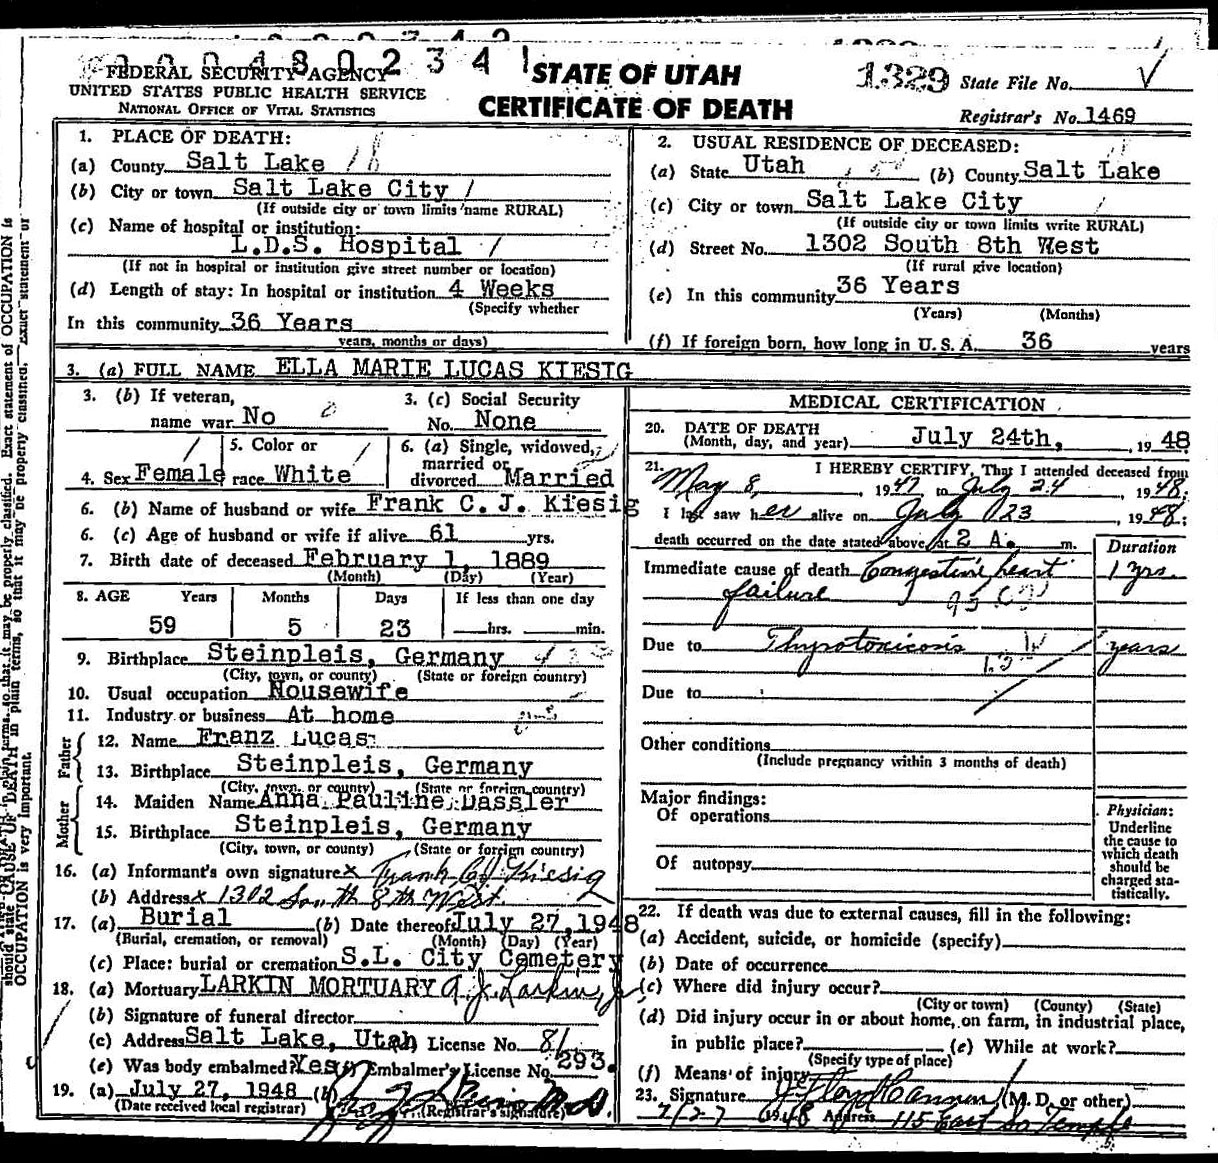 0 0 0 4 8 0 2 3 4 1
FEDERAL SECURITY AGENCY
UNITED STATES PUBLIC HEALTH SERVICE
NATIONAL OFFICE OF VITAL STATISTICS
STATE OF UTAH
CERTIFICATE OF DEATH
1329 State File No.
Registrar's No. 1469
1. PLACE OF DEATH:
(a) County Salt Lake 18
(b) City or town Salt Lake City 1
(If outside city or town limits name RURAL)
(c) Name of hospital or institution:
L.D.S. Hospital
(If not in hospital or institution give street number or location)
(d) Length of stay: In hospital or institution 4 Weeks
(Specify whether
In this community 36 Years
years, months or days)
2. USUAL RESIDENCE OF DECEASED:
(a) State Utah (b) County Salt Lake
(c) City or town Salt Lake City
(If outside city or town limits write RURAL)
(d) Street No. 1302 South 8th West
(If rural give location)
(e) In this community 36 Years
(Years) (Months)
(f) If foreign born, how long in U. S. A. 36 years
3. (a) FULL NAME ELLA MARIE LUCAS KIESIG
3. (b) If veteran,
name war No
3. (c) Social Security
No. None
4. Sex Female
5. Color or
race White
6. (a) Single, widowed,
married or
divorced Married
6. (b) Name of husband or wife Frank C. J. Kiesig
6. (c) Age of husband or wife if alive 61 yrs.
7. Birth date of deceased February 1, 1889
(Month) (Day) (Year)
8. AGE Years Months Days If less than one day
59 5 23 hrs. min.
9. Birthplace Steinpleis, Germany
(City, town, or county) (State or foreign country)
10. Usual occupation Housewife
11. Industry or business At home
Father
12. Name Franz Lucas
13. Birthplace Steinpleis, Germany
(City, town, or county) (State or foreign country)
Mother
14. Maiden Name Anna Pauline Dassler
15. Birthplace Steinpleis, Germany
(City, town, or county) (State or foreign country)
16. (a) Informant's own signature x Frank C J Kiesig
(b) Address x 1302 South 8th West.
17. (a) Burial (b) Date thereof July 27, 1948
(Burial, cremation, or removal) (Month) (Day) (Year)
(c) Place: burial or cremation S.L. City Cemetery
18. (a) Mortuary LARKIN MORTUARY A. J. Larkin, Jr
(b) Signature of funeral director
(c) Address Salt Lake, Utah (d) License No. 81
(e) Was body embalmed? Yes (f) Embalmer's License No. 293.
19. (a) July 27, 1948 (b)
(Date received local registrar) (Registrar's signature)
MEDICAL CERTIFICATION
20. DATE OF DEATH
(Month, day, and year) July 24th, , 19 48
21. I HEREBY CERTIFY, That I attended deceased from
May 8, , 1947 to July 24 , 1948;
I last saw her alive on July 23 , 1948;
death occurred on the date stated above, at 2 A. m.
Duration
Immediate cause of death Congestive heart 1 yrs.
failure
Due to Thyrotoxicosis years
Due to
Other conditions
(Include pregnancy within 3 months of death)
Major findings:
Of operations
Of autopsy
Physician:
Underline
the cause to
which death
should be
charged sta-
tistically.
22. If death was due to external causes, fill in the following:
(a) Accident, suicide, or homicide (specify)
(b) Date of occurrence
(c) Where did injury occur?
(City or town) (County) (State)
(d) Did injury occur in or about home, on farm, in industrial place,
in public place? (e) While at work?
(Specify type of place)
(f) Means of injury
23. Signature J Floyd Cannon (M. D. or other)
7/27 1948 Address 115 East So Temple
should state CAUSE OF DEATH in plain terms, so that it may be properly classified. Exact statement of OCCUPATION is
OCCUPATION is very important.